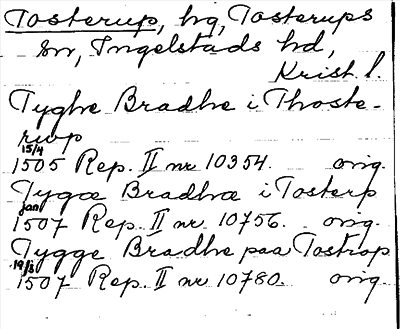 Tosterup, hg, Tosterups
sn, Ingelstads hd,
Krist. l.
Tyghe Bradhe i Thoste-
rwp
15/4
1505 Rep. II nr 10354. orig.
Tygæ Bradhæ i Tosterp
jan
1507 Rep. II nr 10756. orig.
Tygge Bradhe paa Tostrop
19/8
1507 Rep. II nr 10780. orig.